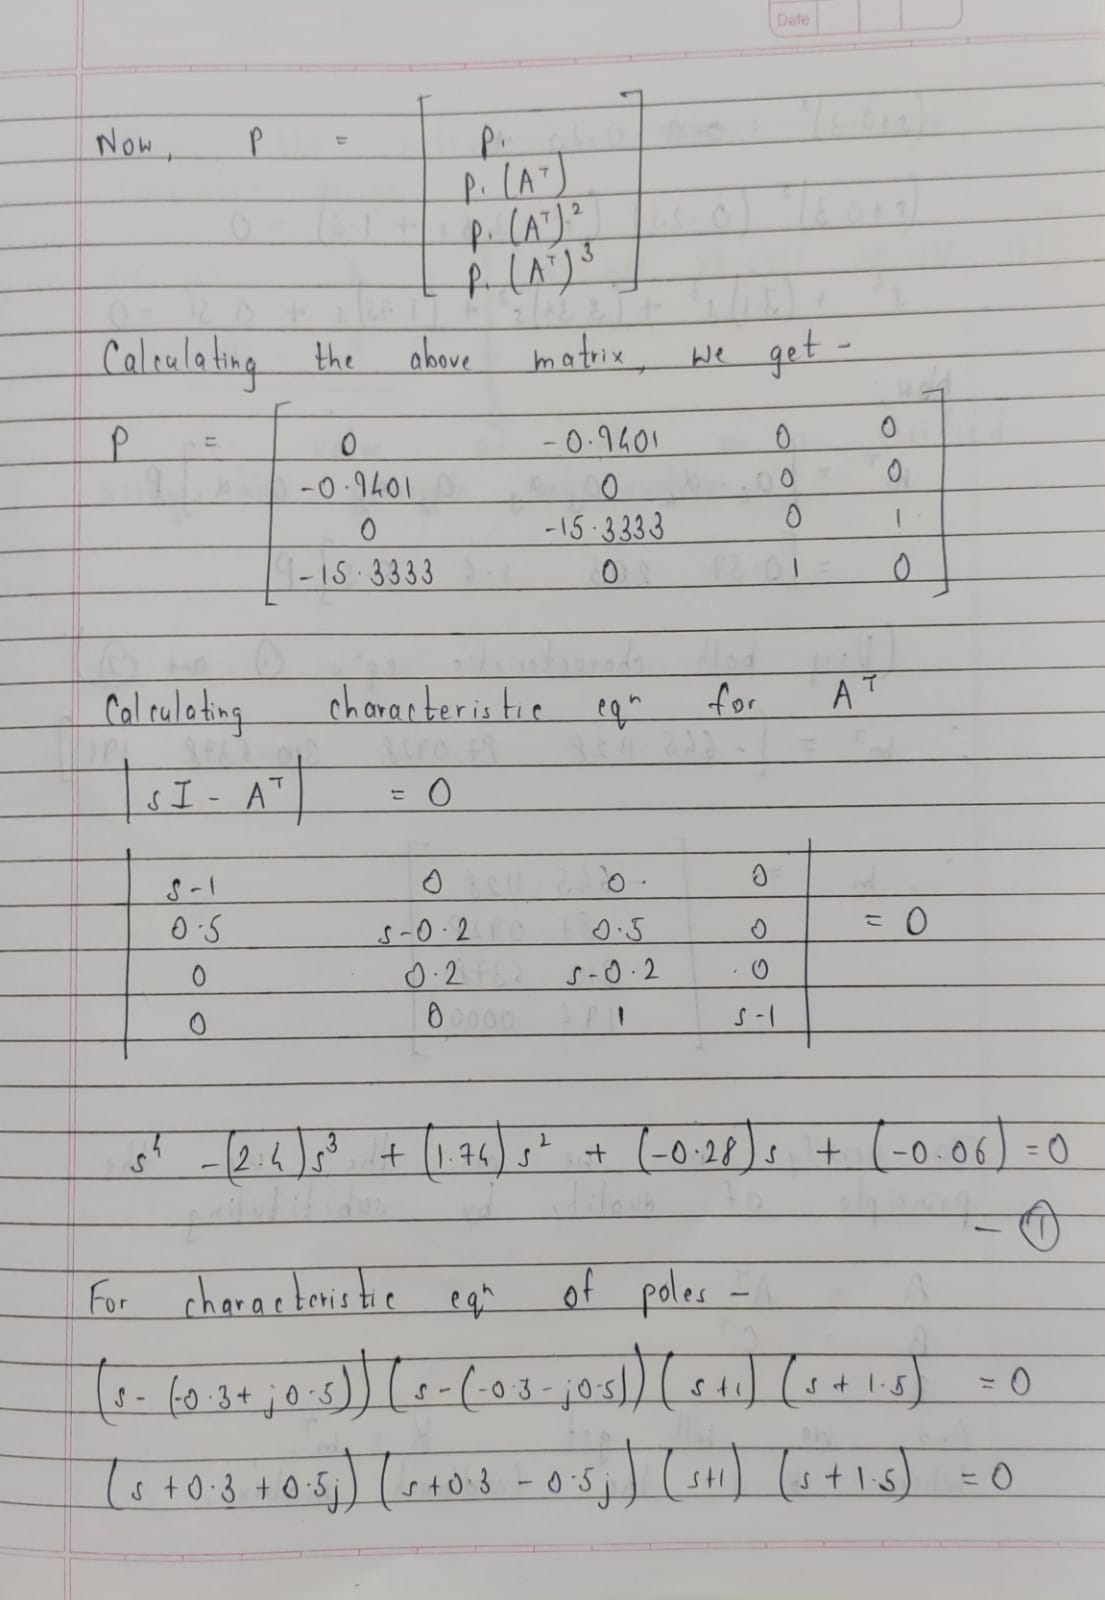 Date
Now, P = [ P₁
P₁ (Aᵀ)
P₁ (Aᵀ)²
P₁ (Aᵀ)³ ]
Calculating the above matrix, we get -
P = [ 0 -0.9401 0 0
-0.9401 0 0 0
0 -15.3333 0 1
-15.3333 0 1 0 ]
Calculating characteristic eqⁿ for Aᵀ
|sI - Aᵀ| = 0
| s-1 0 0 0 |
| 0.5 s-0.2 0.5 0 | = 0
| 0 0.2 s-0.2 0 |
| 0 0 1 s-1 |
s⁴ - (2.4)s³ + (1.74)s² + (-0.28)s + (-0.06) = 0
- ①
For characteristic eqⁿ of poles -
(s - (-0.3 + j0.5)) (s - (-0.3 - j0.5)) (s+1) (s + 1.5) = 0
(s + 0.3 + 0.5j) (s + 0.3 - 0.5j) (s+1) (s + 1.5) = 0